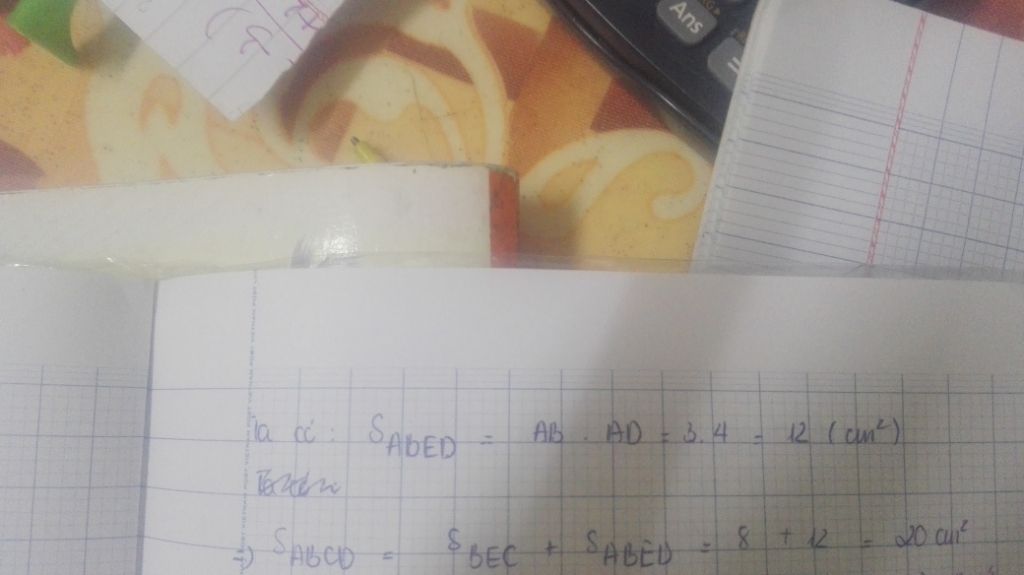 Ans
=
Ta có : S ABED = AB . AD = 3. 4 = 12 (cm²)
=> S ABCD = S BEC + S ABED = 8 + 12 = 20 cm²